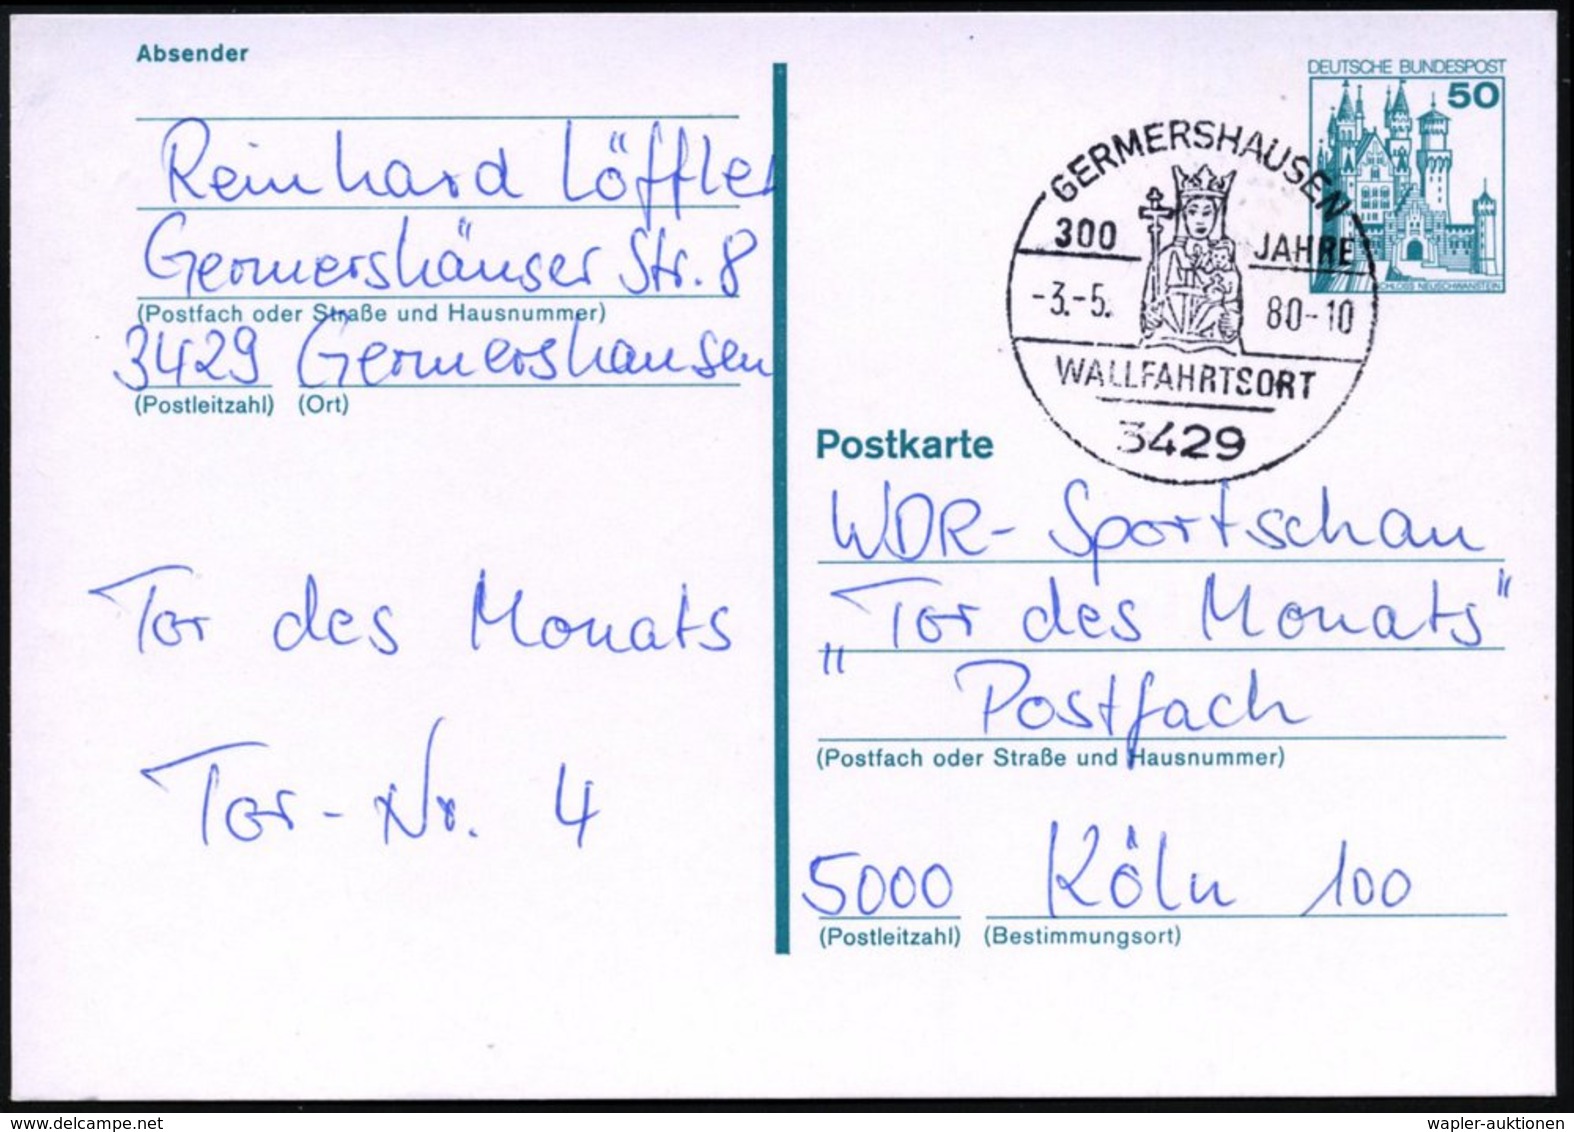 Absender
Reinhard Löffler
Germershäuser Str. 8
(Postfach oder Straße und Hausnummer)
3429 Germershausen
(Postleitzahl) (Ort)
Tor des Monats
Tor-Nr. 4
DEUTSCHE BUNDESPOST
50
SCHLOSS NEUSCHWANSTEIN
GERMERSHAUSEN
300 JAHRE
-3.-5. 80-10
WALLFAHRTSORT
3429
Postkarte
WDR-Sportschau
„Tor des Monats"
Postfach
(Postfach oder Straße und Hausnummer)
5000 Köln 100
(Postleitzahl) (Bestimmungsort)
wapler-auktionen